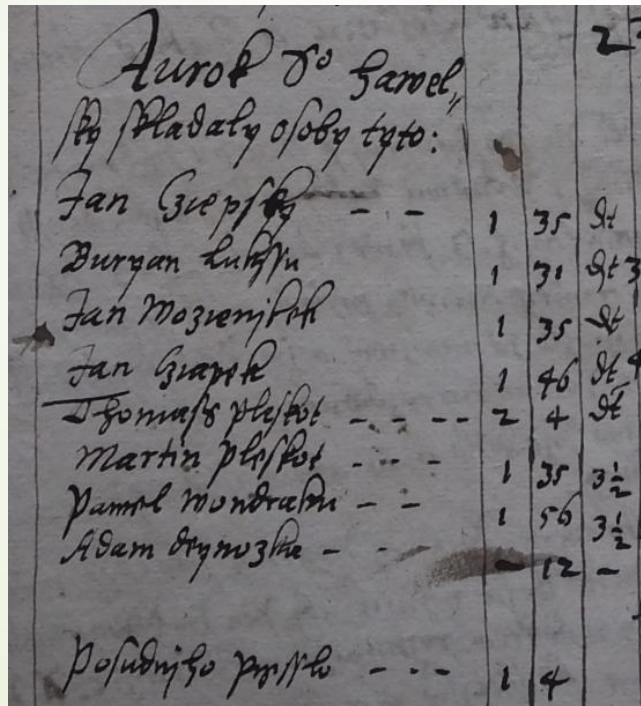 2
Aurok So Hawel„
sky skladaly osoby tyto:
Jan Cziepsky - - 1 35 dt
Buryan Lukssu 1 31 dt 3
Jan Wozieniilek 1 35 dt
Jan Cziapek 1 46 dt 4
Thomass Pleskot - - - - 2 4 dt
Martin Pleskot - - - 1 35 3½
Pawel Wondraku - - 1 56 3½
Adam - - - 12 -
Posudnijho Prisslo - - - 1 4